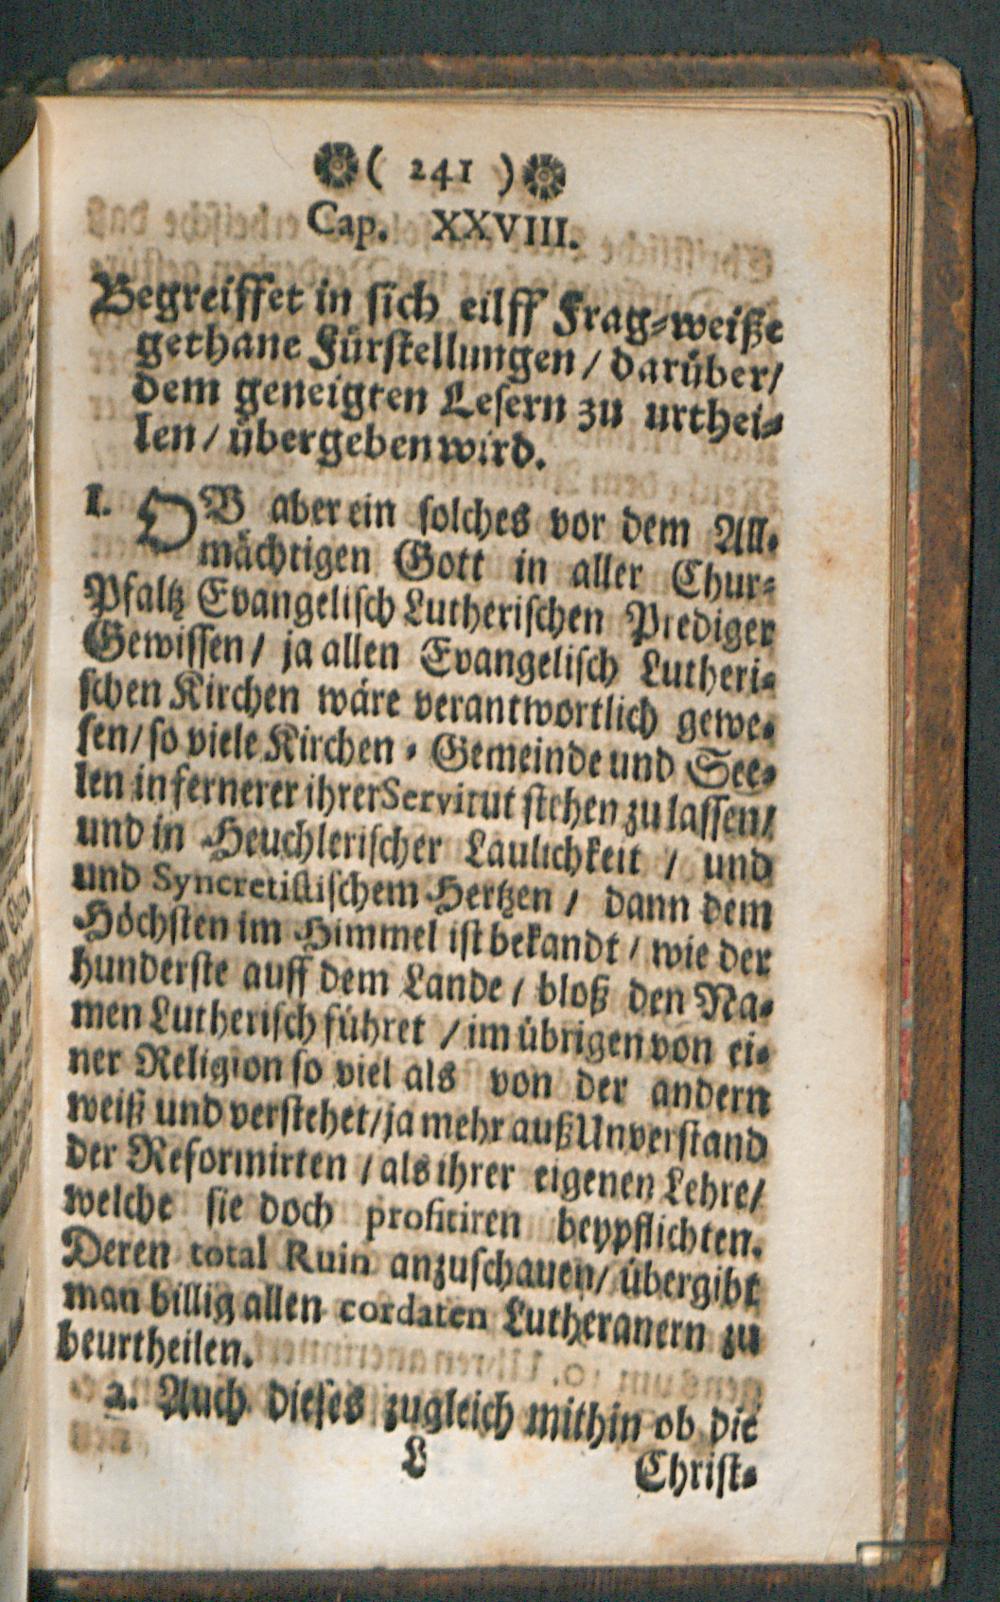 ( 241 )
Cap. XXVIII.
Begreiffet in sich eilff Frag-weiße
gethane Fürstellungen / darüber /
dem geneigten Lesern zu urthei-
len / übergeben wird.
1. OB aber ein solches vor dem All-
mächtigen Gott in aller Chur-
Pfaltz Evangelisch Lutherischen Prediger
Gewissen / ja allen Evangelisch Lutheri-
schen Kirchen wäre verantwortlich gewe-
sen / so viele Kirchen - Gemeinde und See-
len in fernerer ihrer Servitut stehen zu lassen /
und in Heuchlerischer Laulichkeit / und
und Syncretistischem Hertzen / dann dem
Höchsten im Himmel ist bekandt / wie der
hunderste auff dem Lande / bloß den Na-
men Lutherisch führet / im übrigen von ei-
ner Religion so viel als von der andern
weiß und verstehet / ja mehr auß Unverstand
der Reformirten / als ihrer eigenen Lehre /
welche sie doch profitiren beypflichten.
Deren total Ruin anzuschauen / übergibt
man billig allen cordaten Lutheranern zu
beurtheilen.
2. Auch dieses zugleich mithin ob die
L Christ-